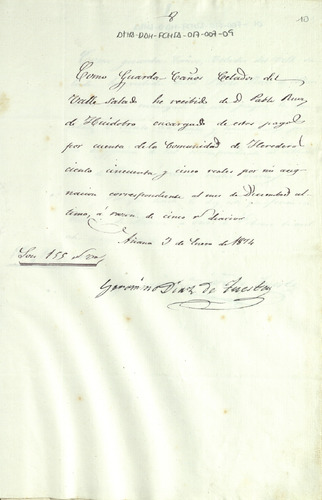 8
10
DMB-DOH-FCHSA-017-007-09
Como Guarda Caños Celador del
Valle salado he recibido de D. Pablo Ruiz
de Huidobro encargado de estos pagos
por cuenta de la Comunidad de Herederos
ciento cincuenta y cinco reales por mi asig-
nación correspondiente al mes de Diciembre ul-
timo, á razon de cinco diarios
Añana 3 de Enero de 1874
Son 155
Geronimo Diaz de